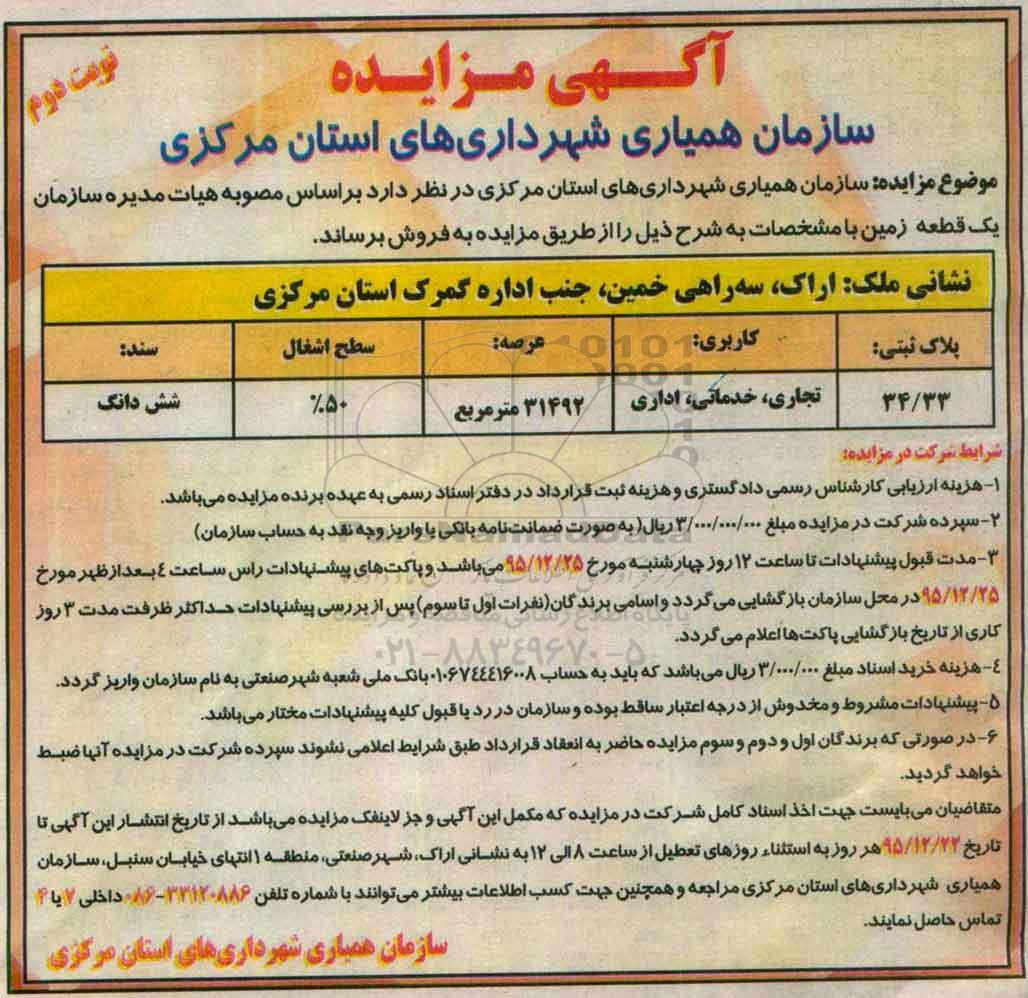 نوبت دوم
آگهی مزایده
سازمان همیاری شهرداری‌های استان مرکزی
موضوع مزایده: سازمان همیاری شهرداری‌های استان مرکزی در نظر دارد براساس مصوبه هیات مدیره سازمان
یک قطعه زمین با مشخصات به شرح ذیل را از طریق مزایده به فروش برساند.
نشانی ملک: اراک، سه‌راهی خمین، جنب اداره گمرک استان مرکزی
پلاک ثبتی: کاربری: عرصه: سطح اشغال سند:
۳۴/۳۳ تجاری، خدماتی، اداری ۳۱۴۹۲ مترمربع ۵۰٪ شش دانگ
شرایط شرکت در مزایده:
۱- هزینه ارزیابی کارشناس رسمی دادگستری و هزینه ثبت قرارداد در دفتر اسناد رسمی به عهده برنده مزایده می‌باشد.
۲- سپرده شرکت در مزایده مبلغ ۳/۰۰۰/۰۰۰/۰۰۰ ریال( به صورت ضمانت‌نامه بانکی یا واریز وجه نقد به حساب سازمان)
۳- مدت قبول پیشنهادات تا ساعت ۱۲ روز چهارشنبه مورخ ۹۵/۱۲/۲۵ می‌باشد و پاکت‌های پیشنهادات راس ساعت ٤ بعدازظهر مورخ
۹۵/۱۲/۲۵ در محل سازمان بازگشایی می‌گردد و اسامی برندگان(نفرات اول تا سوم) پس از بررسی پیشنهادات حداکثر ظرفت مدت ۳ روز
کاری از تاریخ بازگشایی پاکت‌ها اعلام می‌گردد.
٤- هزینه خرید اسناد مبلغ ۳/۰۰۰/۰۰۰ ریال می‌باشد که باید به حساب ۰۱۰۶۷٤٤٤۱۶۰۰۸ بانک ملی شعبه شهرصنعتی به نام سازمان واریز گردد.
۵- پیشنهادات مشروط و مخدوش از درجه اعتبار ساقط بوده و سازمان در رد یا قبول کلیه پیشنهادات مختار می‌باشد.
۶- در صورتی که برندگان اول و دوم و سوم مزایده حاضر به انعقاد قرارداد طبق شرایط اعلامی نشوند سپرده شرکت در مزایده آنها ضبط
خواهد گردید.
متقاضیان می‌بایست جهت اخذ اسناد کامل شرکت در مزایده که مکمل این آگهی و جز لاینفک مزایده می‌باشد از تاریخ انتشار این آگهی تا
تاریخ ۹۵/۱۲/۲۲ هر روز به استثناء روزهای تعطیل از ساعت ۸ الی ۱۲ به نشانی اراک، شهرصنعتی، منطقه ۱ انتهای خیابان سنبل، سازمان
همیاری شهرداری‌های استان مرکزی مراجعه و همچنین جهت کسب اطلاعات بیشتر می‌توانند با شماره تلفن ۳۳۱۲۰۸۸۶-۰۸۶ داخلی ۲ یا ۴
تماس حاصل نمایند.
سازمان همیاری شهرداری‌های استان مرکزی
ParsNamadData
پایگاه اطلاع رسانی مناقصه و مزایده
۰۲۱-۸۸۳۴۹۶۷۰-۵